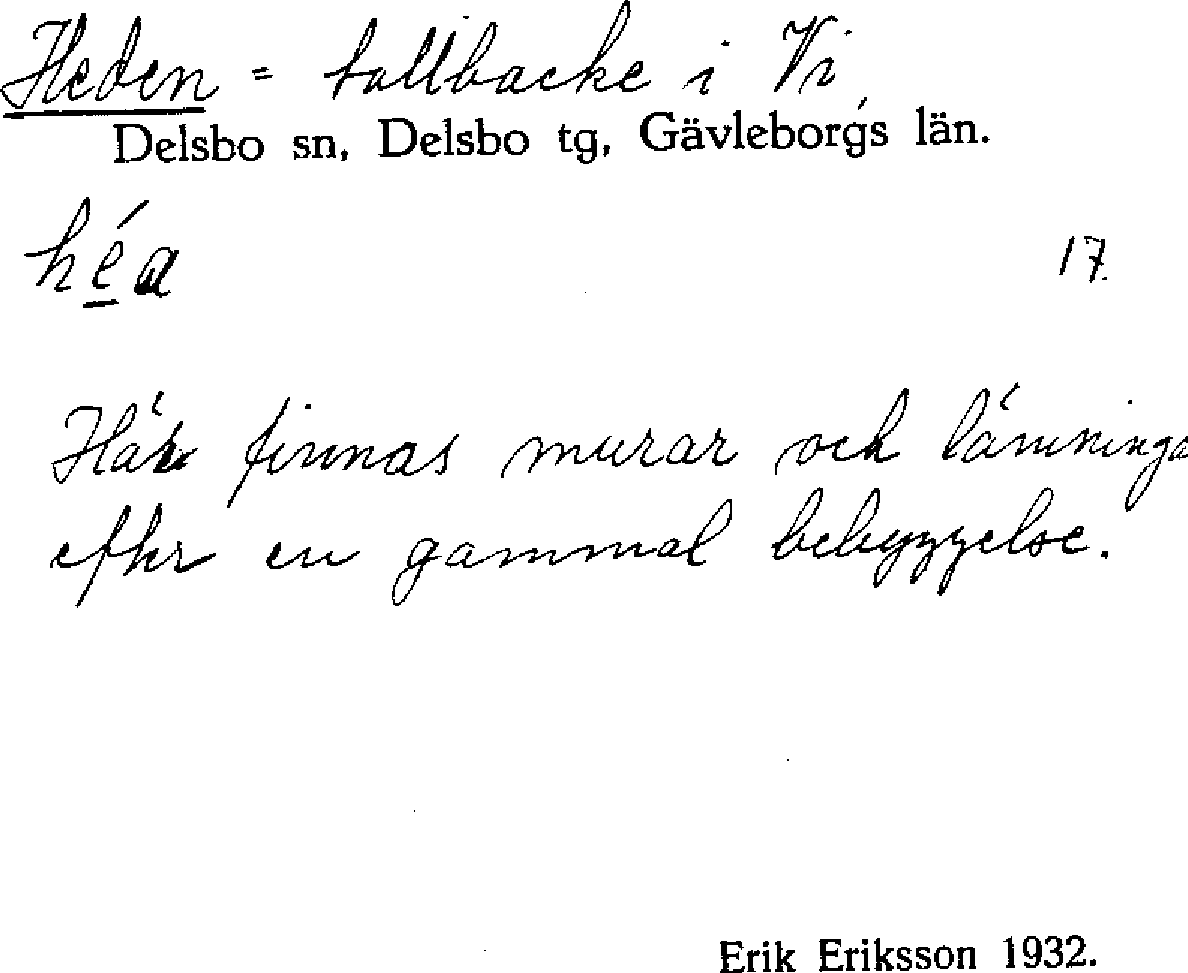 Heden = tallbacke i Vi
Delsbo sn, Delsbo tg, Gävleborgs län.
héa
17.
Här finnas murar och lämninga
efter en gammal bebyggelse.
Erik Eriksson 1932.